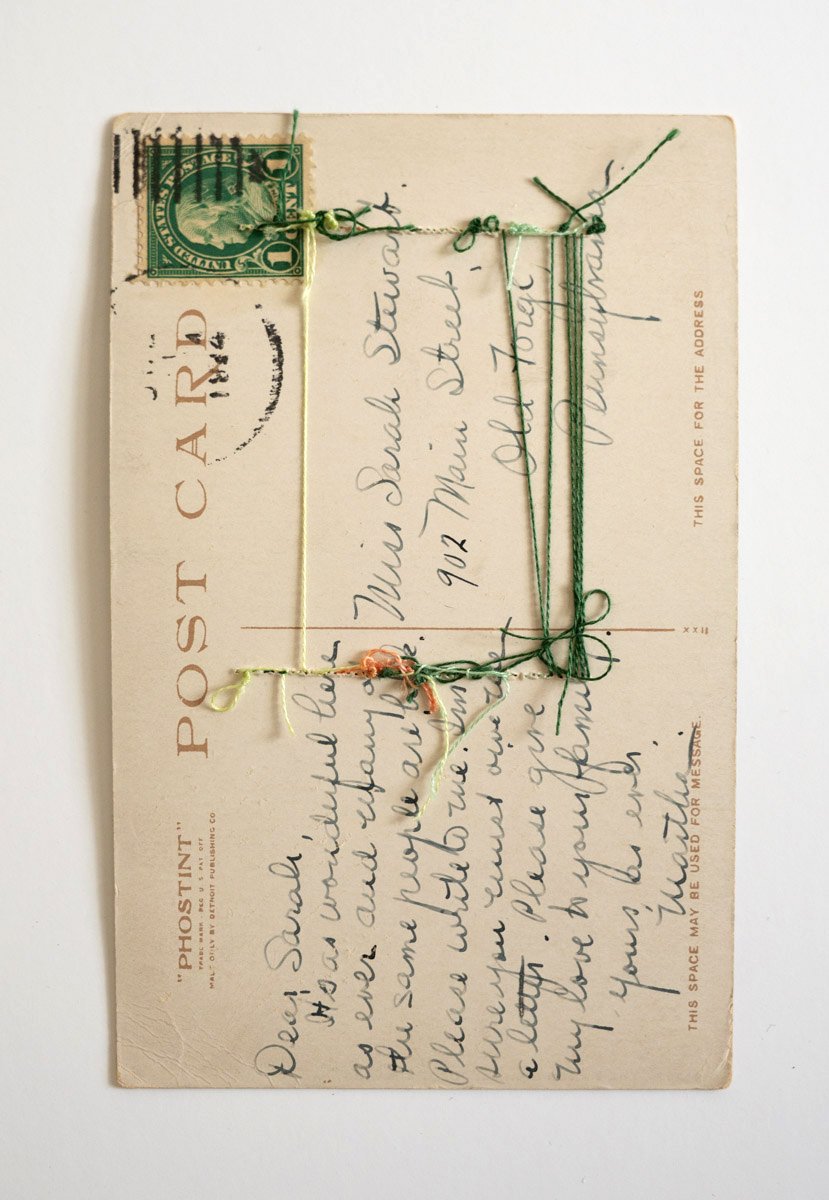 "PHOSTINT"
TRADE MARK - REG U.S. PAT OFF
MADE ONLY BY DETROIT PUBLISHING CO
POST CARD
UNITED STATES POSTAGE
1 CENT 1
Dear Sarah,
It's as wonderful here
as ever and many of
the same people are here.
Please write to me. I'm
sure you must owe me
a letter. Please give
my love to your family.
Yours as ever,
Martha.
Miss Sarah Stewart.
902 Main Street,
Old Forge,
Pennsylvania.
THIS SPACE MAY BE USED FOR MESSAGE.
THIS SPACE FOR THE ADDRESS